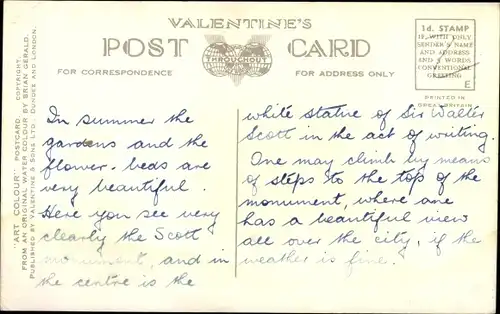 VALENTINE'S
POST CARD
THROUGHOUT
FOR CORRESPONDENCE
FOR ADDRESS ONLY
1d. STAMP
IF WITH ONLY
SENDER'S NAME
AND ADDRESS
AND 5 WORDS
CONVENTIONAL
GREETING
E
PRINTED IN
GREAT BRITAIN
"ART COLOUR" POSTCARD. COPYRIGHT.
FROM AN ORIGINAL WATER COLOUR BY BRIAN GERALD.
PUBLISHED BY VALENTINE & SONS LTD. DUNDEE AND LONDON.
In summer the
gardens and the
flower-beds are
very beautiful.
Here you see very
clearly the Scott
monument, and in
the centre is the
white statue of Sir Walter
Scott in the act of writing.
One may climb by means
of steps to the top of the
monument, where one
has a beautiful view
all over the city, if the
weather is fine.